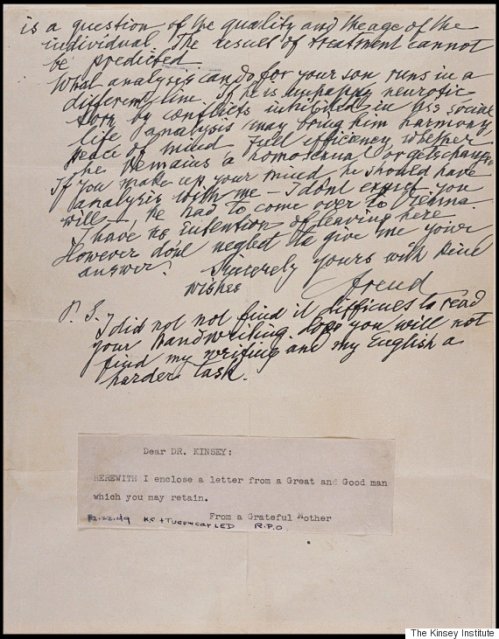 is a question of the quality and the age of the
individual. The result of treatment cannot
be predicted.
What analysis can do for your son runs in a
different line. If he is unhappy, neurotic,
torn by conflicts, inhibited in his social
life, analysis may bring him harmony,
peace of mind, full efficiency, whether
he remains a homosexual or gets changed.
If you make up your mind he should have
analysis with me — I don't expect you
will —, he had to come over to Vienna.
I have no intention of leaving here.
However don't neglect to give me your
answer.
Sincerely yours with kind
wishes
Freud
P. S.
I did not not find it difficult to read
your handwriting. Hope you will not
find my writing and my English a
harder task.
Dear DR. KINSEY:
HEREWITH I enclose a letter from a Great and Good man
which you may retain.
From a Grateful Mother
R.P.O.
The Kinsey Institute